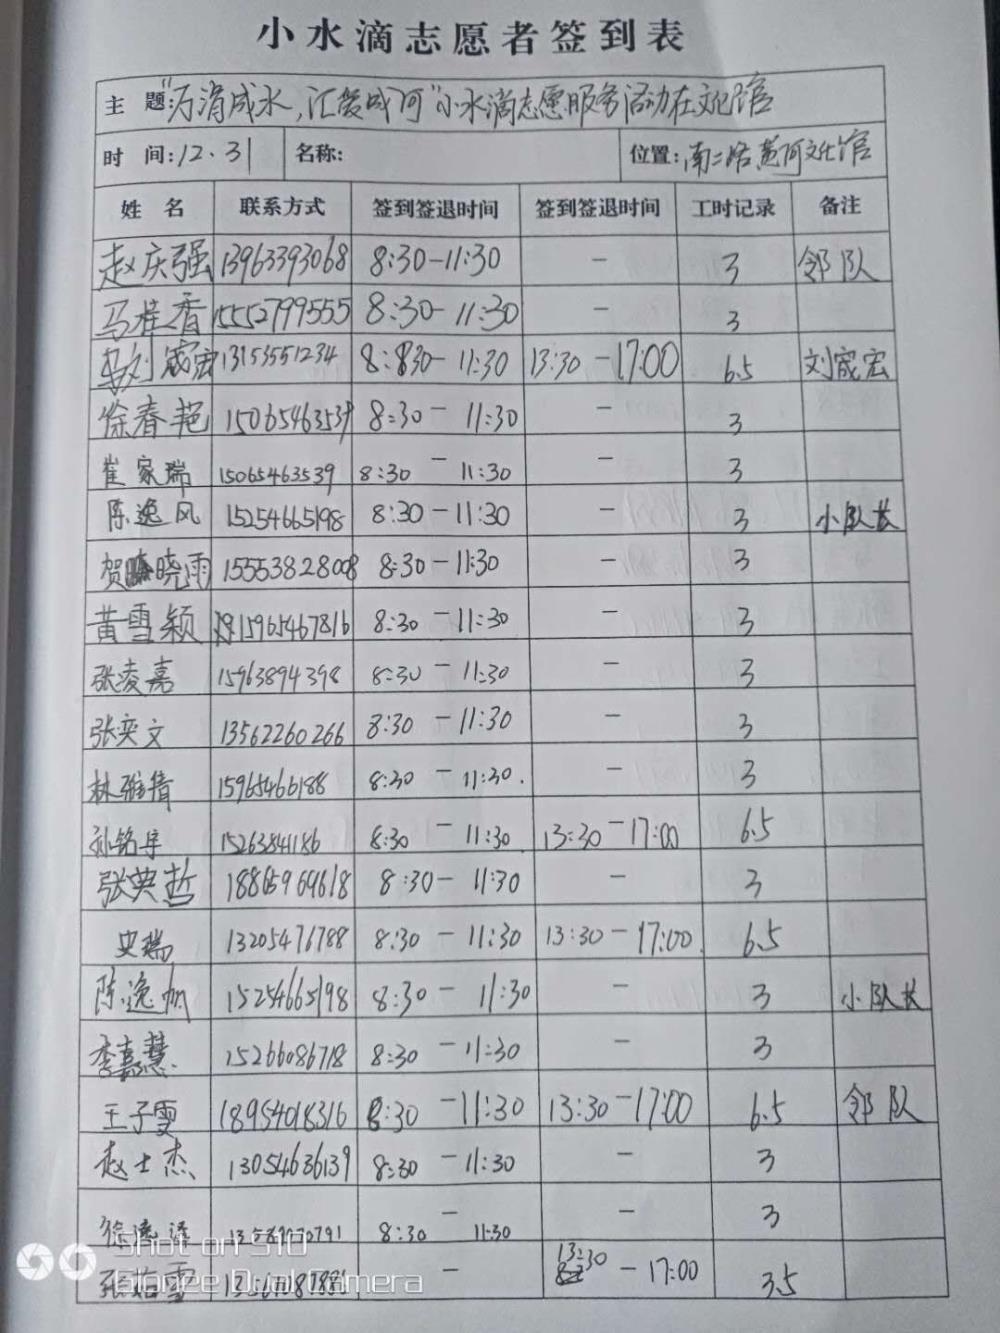 小水滴志愿者签到表
主 题:"万涓成水,汇聚成河"小水滴志愿服务活动在文化馆
时 间:12.31 名称: 位置:南二路黄河文化馆
姓 名 联系方式 签到签退时间 签到签退时间 工时记录 备注
赵庆强 13963393068 8:30-11:30 - 3 邻队
马桂香 15552799555 8:30-11:30 - 3
刘宬宏 13153551234 8:30-11:30 13:30-17:00 6.5 刘宬宏
徐春艳 15065463539 8:30-11:30 - 3
崔家瑞 15065463539 8:30-11:30 - 3
陈逸风 15254665198 8:30-11:30 - 3 小队长
贺晓雨 15553828008 8:30-11:30 - 3
黄雪颖 15965467816 8:30-11:30 - 3
张凌嘉 15963894398 8:30-11:30 - 3
张奕文 13562260266 8:30-11:30 - 3
林雅倩 15965466188 8:30-11:30. - 3
孙铭宇 15263841186 8:30-11:30 13:30-17:00 6.5
张英哲 18865969618 8:30-11:30 - 3
史瑞 13205471788 8:30-11:30 13:30-17:00. 6.5
陈逸帆 15254665198 8:30-11:30 - 3 小队长
李嘉慧. 15266086718 8:30-11:30 - 3
王子雯 18954018316 8:30-11:30 13:30-17:00 6.5 邻队
赵士杰 13054636139 8:30-11:30 - 3
徐 8:30-11:30 - 3
Shot on S10
张 雪 - 13:30-17:00 3.5
Gionee Dual Camera